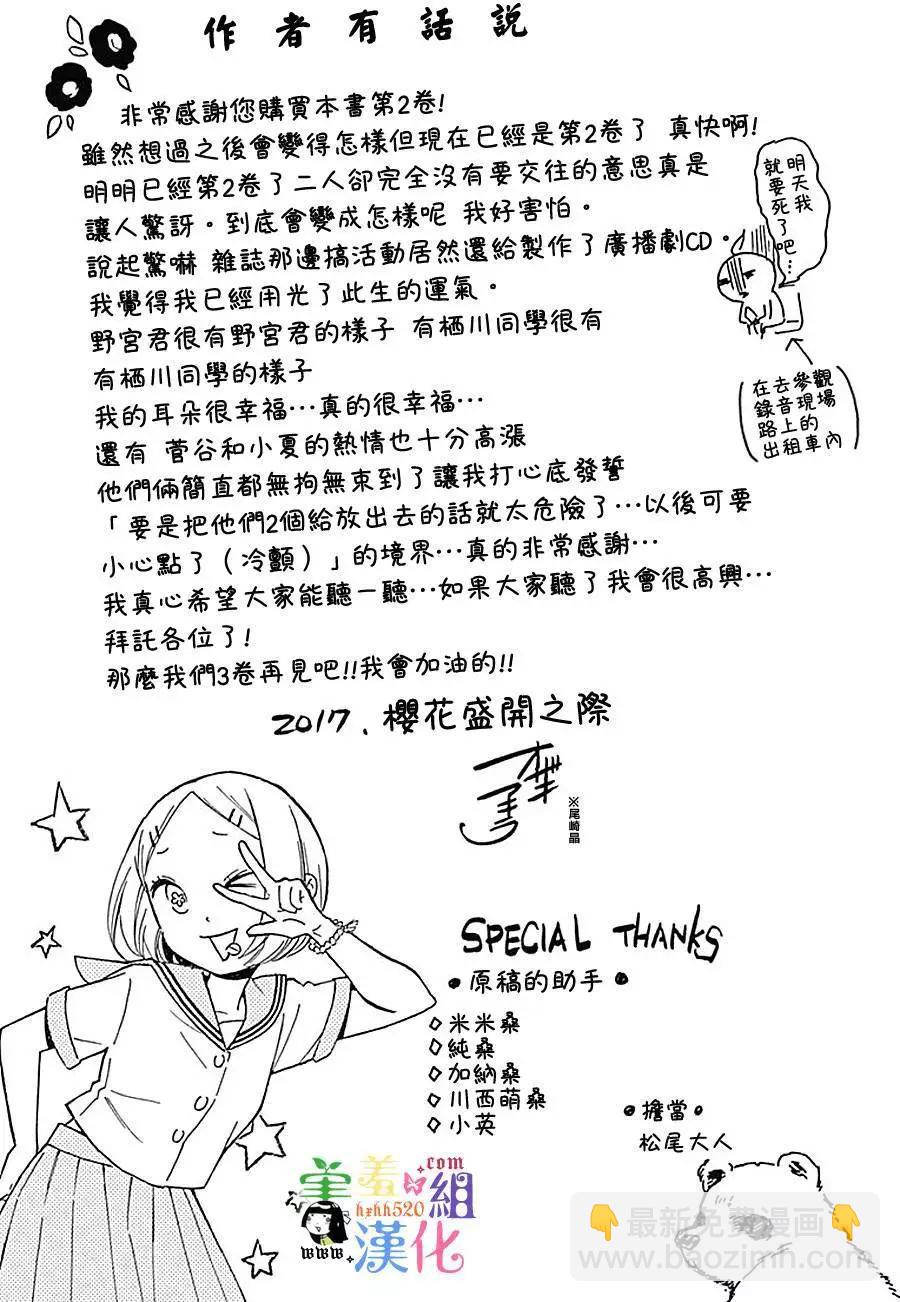 作者有話說
非常感謝您購買本書第2卷!
雖然想過之後會變得怎樣但現在已經是第2卷了 真快啊!
明明已經第2卷了二人卻完全沒有要交往的意思真是
讓人驚訝。到底會變成怎樣呢 我好害怕。
說起驚嚇 雜誌那邊搞活動居然還給製作了廣播劇CD。
我覺得我已經用光了此生的運氣。
野宮君很有野宮君的樣子 有栖川同學很有
有栖川同學的樣子
我的耳朵很幸福…真的很幸福…
還有 菅谷和小夏的熱情也十分高漲
他們倆簡直都無拘無束到了讓我打心底發誓
「要是把他們2個給放出去的話就太危險了…以後可要
小心點了（冷顫）」的境界…真的非常感謝…
我真心希望大家能聽一聽…如果大家聽了我會很高興…
拜託各位了!
那麼我們3卷再見吧!!我會加油的!!
2017.櫻花盛開之際
明天我
就要死了吧…
(在去參觀
錄音現場
路上的
出租車內)
※尾崎晶
SPECIAL THANKS
•原稿的助手•
◇米米桑
◇純桑
◇加納桑
◇川西萌桑
◇小英
。擔當。
松尾大人
.com
羞組
hxhh520
www.
漢化
👇最新免費漫画👇
www.baozimh.com